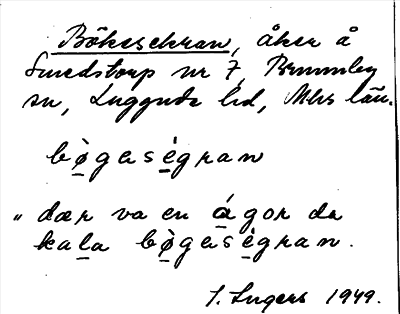 Bökesekran, åker å
Smedstorp nr 7, Brunnby
sn, Luggude hd, Mhs län.
bø̀gasègran
"dær va en ágor da
kala bø̀gasègran.
S. Ingers 1949.